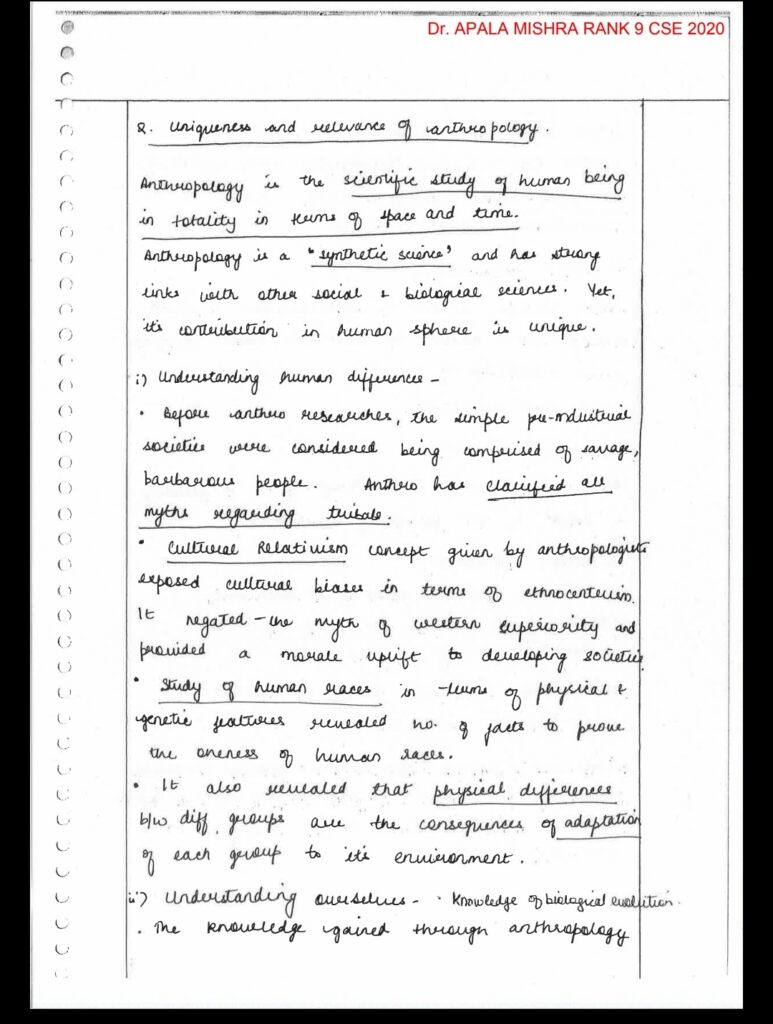 Dr. APALA MISHRA RANK 9 CSE 2020
Q. Uniqueness and relevance of anthropology.
Anthropology is the scientific study of human being
in totality in terms of space and time.
Anthropology is a "synthetic science' and has strong
links with other social & biological sciences. Yet,
it's contribution in human sphere is unique.
i) Understanding human differences -
• Before anthro researches, the simple pre-industrial
societies were considered being comprised of savage,
barbarous people. Anthro has clarified all
myths regarding tribals.
• Cultural Relativism concept given by anthropologists
exposed cultural biases in terms of ethnocentrism.
It negated the myth of western superiority and
provided a morale uplift to developing societies
• Study of human races in terms of physical &
genetic features revealed no. of facts to prove
the oneness of human races.
• It also revealed that physical differences
b/w diff groups are the consequences of adaptation
of each group to it's environment.
ii) Understanding ourselves - • Knowledge of biological evolution.
• The knowledge gained through anthropology